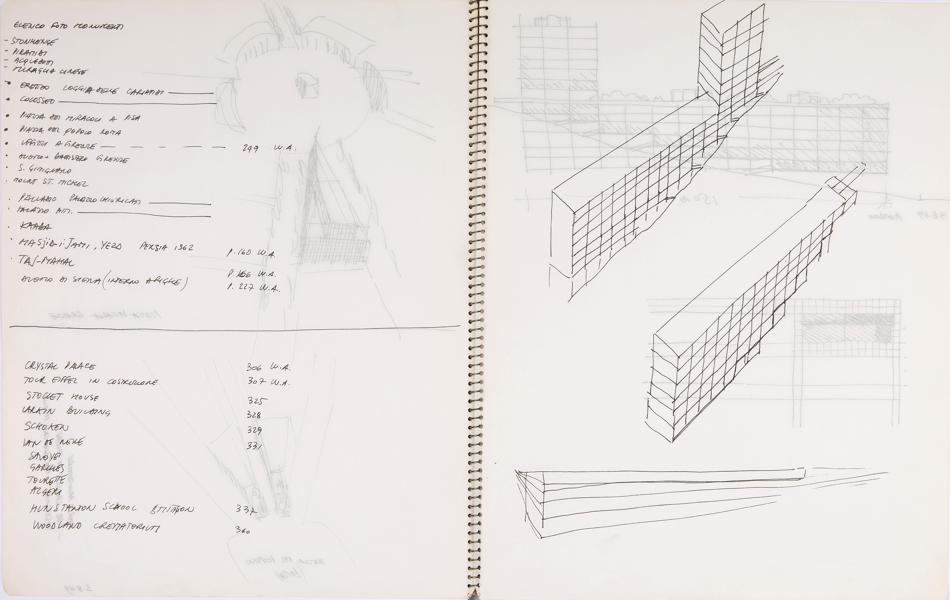 ELENCO FOTO MONUMENTI
- STONHENGE
- PIRAMIDI
- ACQUEDOTTI
- MURAGLIA CINESE
• ERETTEO LOGGIA DELLE CARIATIDI
• COLOSSEO
• PIAZZA DEI MIRACOLI A PISA
• PIAZZA DEL POPOLO ROMA
• UFFIZI A FIRENZE 299 W.A.
• DUOMO + BATTISTERO FIRENZE
• S. GIMIGNANO
• MOUNT ST. MICHEL
• PALLADIO PALAZZO CHIERICATI
• PALAZZO PITTI
• KAABA
• MASJID-I-JAMI, YEZD PERSIA 1362 P. 160 W.A.
• TAJ-MAHAL P. 166 W.A.
DUOMO DI SIENA (INTERNO A RIGHE) P. 227 W.A.
CRYSTAL PALACE 306 W.A.
TOUR EIFFEL IN COSTRUZIONE 307 W.A.
STOCLET HOUSE 325
LARKIN BUILDING 328
SCHOKEN 329
VAN DE NELLE 331
SAVOYE
GARCHES
TOURETTE
ALGERI
HUNSTANTON SCHOOL SMITHSON 337
WOODLAND CREMATORIUM 360